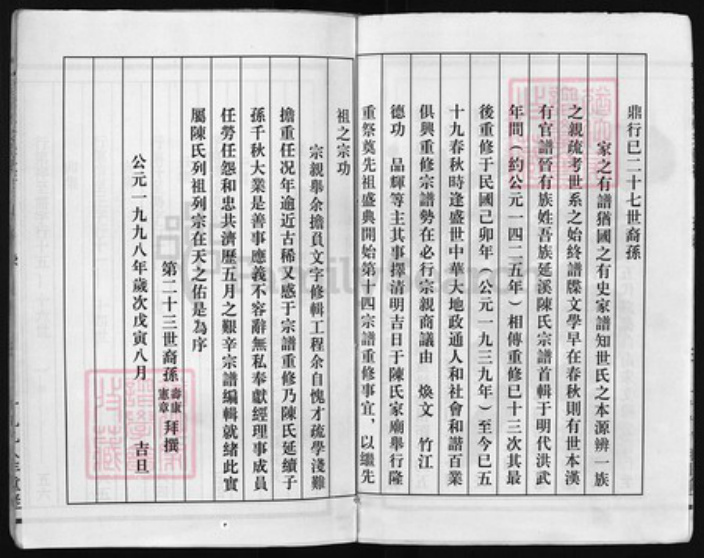 鼎行巳二十七世裔孫
家之有譜猶國之有史家譜知世氏之本源辨一族
之親疏考世系之始終譜牒文學早在春秋則有世本漢
有官譜晉有族姓吾族延溪陳氏宗譜首輯于明代洪武
年間(約公元一四二五年)相傳重修巳十三次其最
後重修于民國己卯年(公元一九三九年)至今巳五
十九春秋時逢盛世中華大地政通人和社會和諧百業
俱興重修宗譜勢在必行宗親商議由 煥文 竹江
德功 品輝等主其事擇清明吉日于陳氏家廟舉行隆
重祭奠先祖盛典開始第十四宗譜重修事宜,以繼先
祖之宗功
宗親舉余擔負文字修輯工程余自愧才疏學淺難
擔重任況年逾近古稀又感于宗譜重修乃陳氏延續子
孫千秋大業是善事應義不容辭無私奉獻經理事成員
任勞任怨和忠共濟歷五月之艱辛宗譜編輯就緒此實
屬陳氏列祖列宗在天之佑是為序
第二十三世裔孫 壽康 憲章 拜撰
公元一九九八年歲次戊寅八月 吉旦
FamilySearch